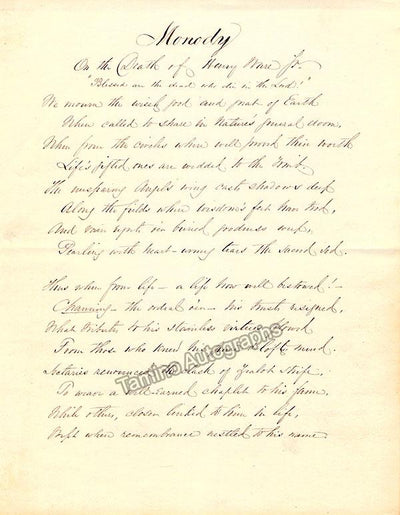 Monody
On the Death of Henry Ware Jr.
"Blessed are the dead who die in the Lord!"
We mourn the wise, good and great of Earth
When called to share in Nature's general doom,
When from the circles where well proved their worth
Life's gifted ones are wedded to the Tomb.
The unsparing Angel's wing cast shadows deep
Along the fields where wisdom's feet have trod,
And o'er in buried goodness weep,
Pearling with heart-wrung tears the sacred sod.
Thus when from life – a life how well bestowed! –
Channing – the ordeal o'er – his trusts resigned,
What tribute to his stainless virtues flowed
From those who knew his and lofty mind.
Sectaries renounced the clash of Zealot strife,
To weave a well-earned chaplet to his fame,
While others, closer linked to him in life,
Wept when remembrance nestled to his name
Tamino Autographs